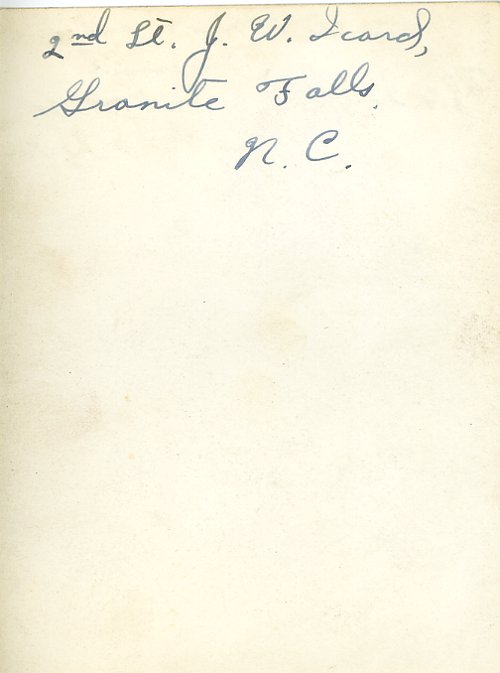 2nd Lt. J. W. Icard,
Granite Falls,
N. C.